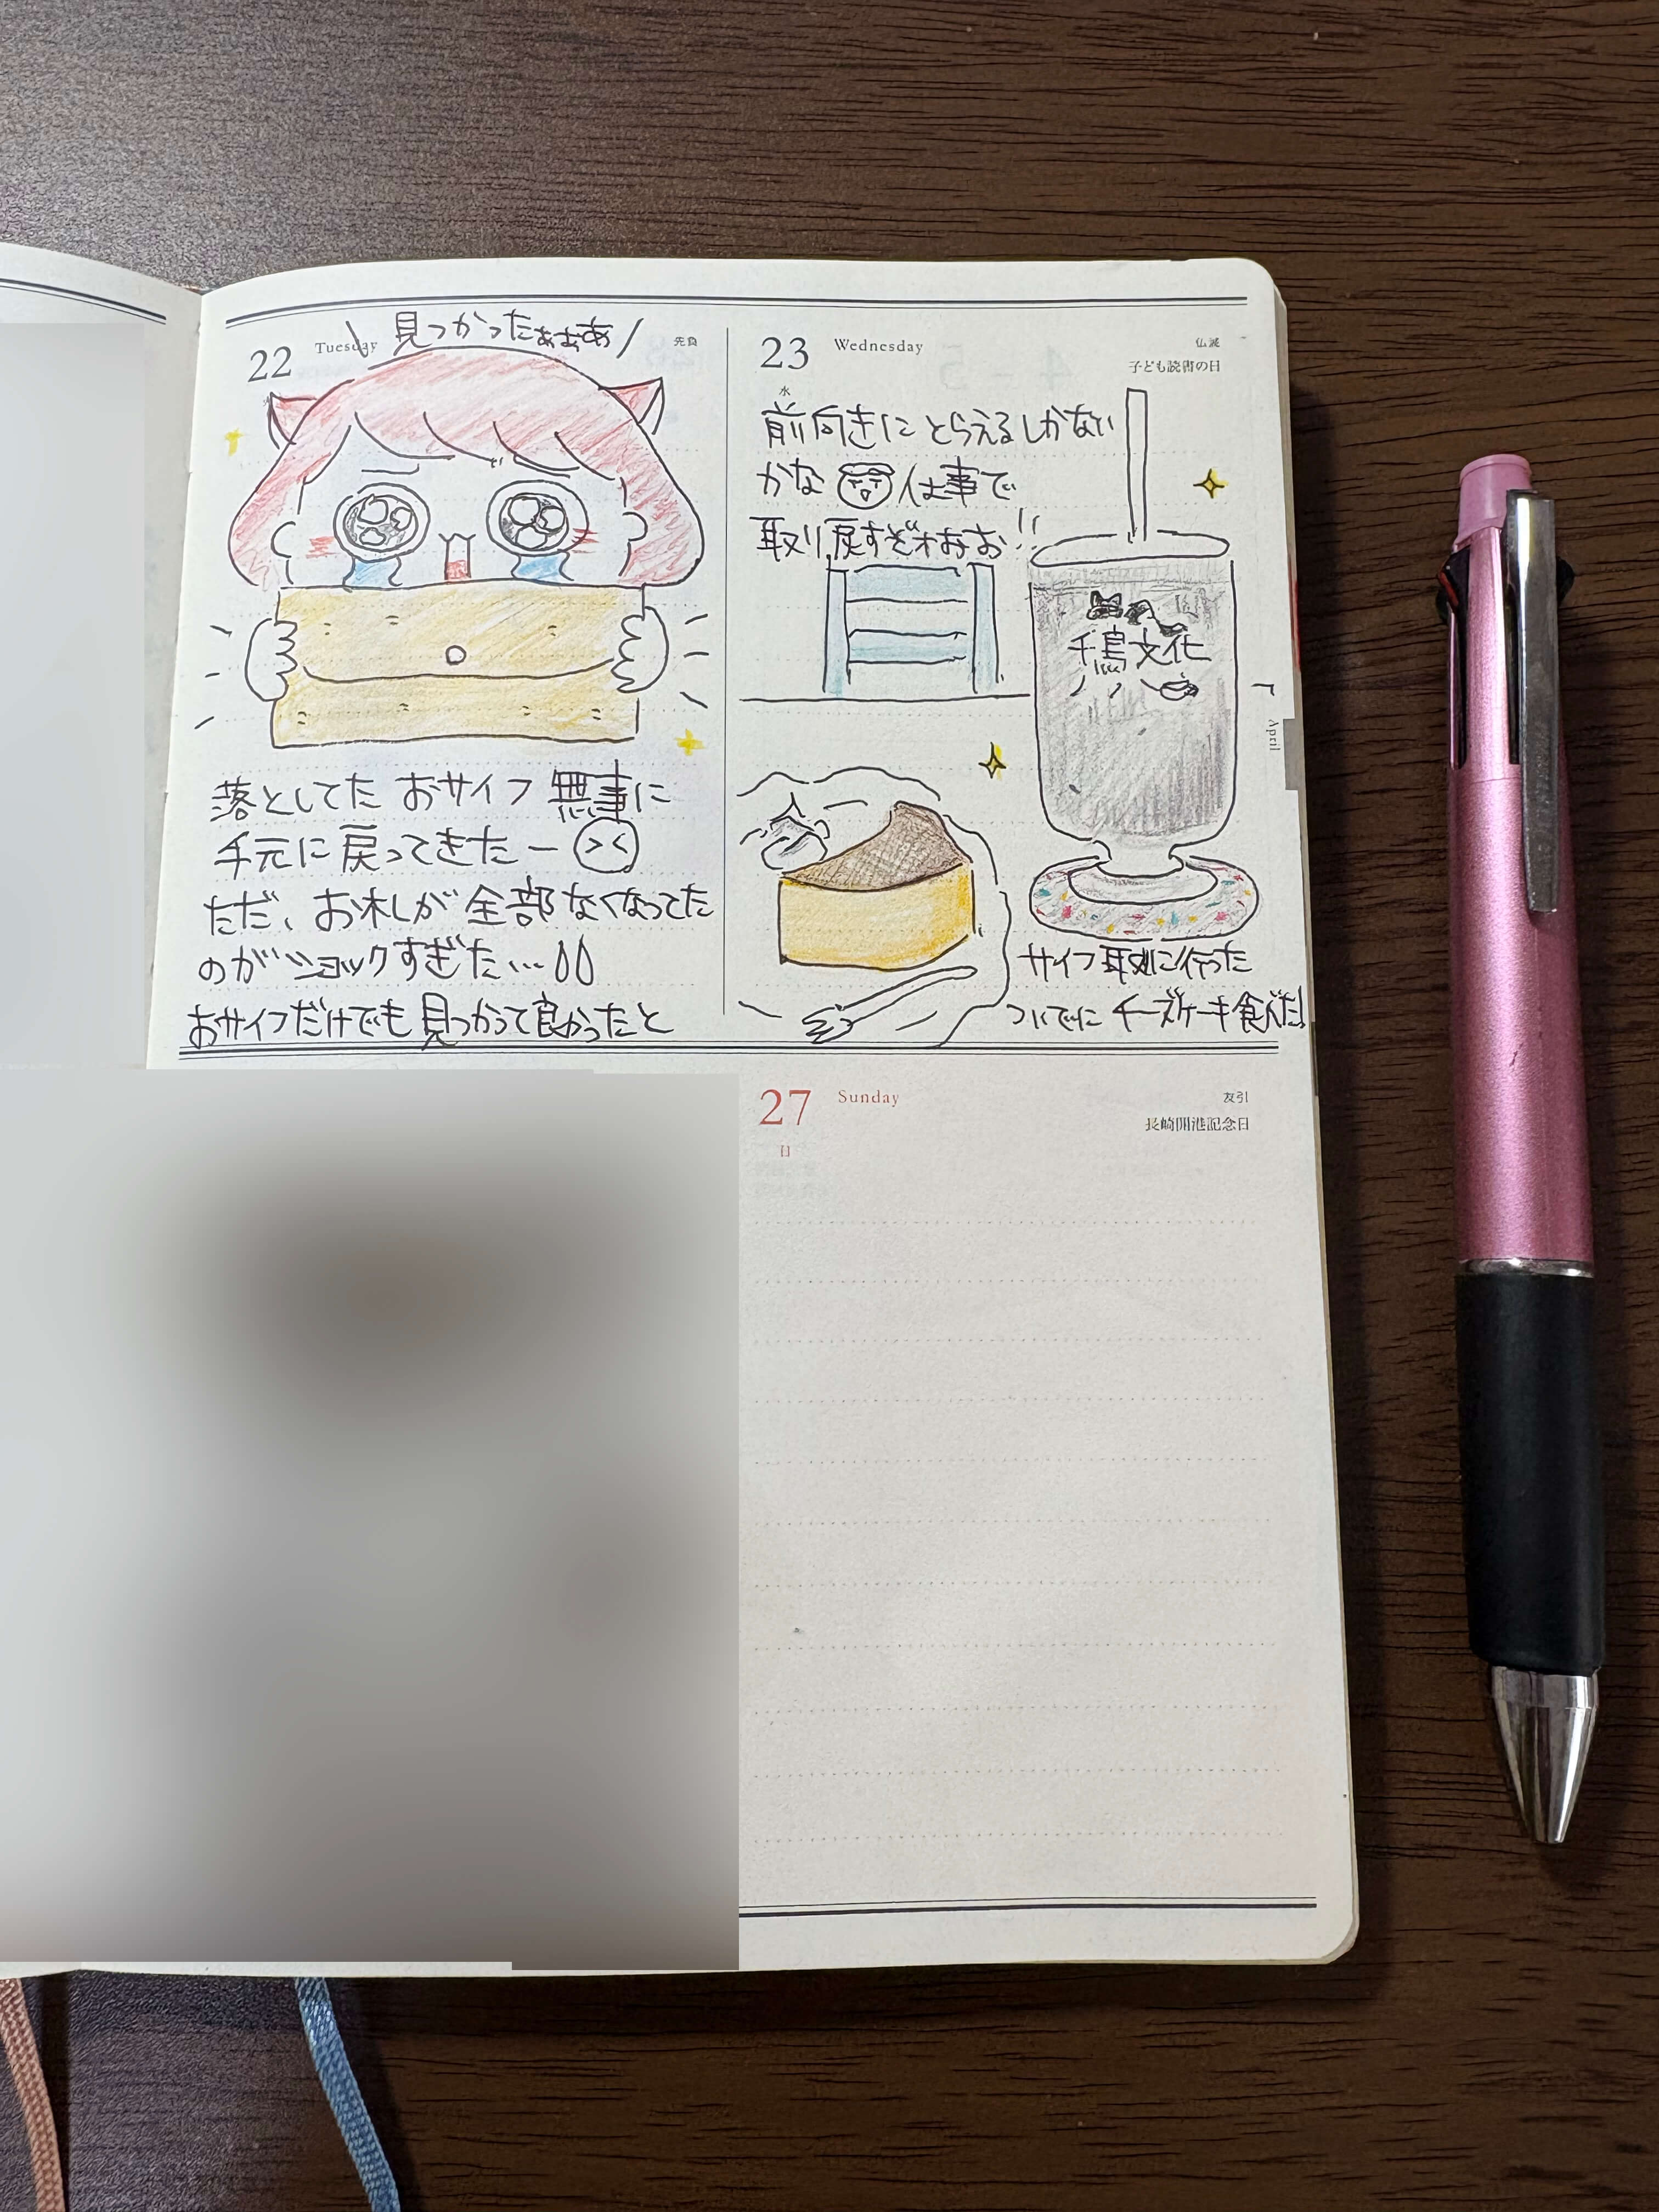 22 Tuesday 先負
火
見つかったぁぁぁあ
落としてた おサイフ 無事に
手元に戻ってきたー
ただ、お札が全部なくなってた
のがショックすぎた…
おサイフだけでも見つかって良かったと
23 Wednesday 仏滅
水 子ども読書の日
前向きにとらえるしかない
かな 仕事で
取り戻すぞォおお!!
千鳥文化
サイフ取りに行った
ついでに チーズケーキ食べた!
4
April
27 Sunday 友引
日 長崎開港記念日